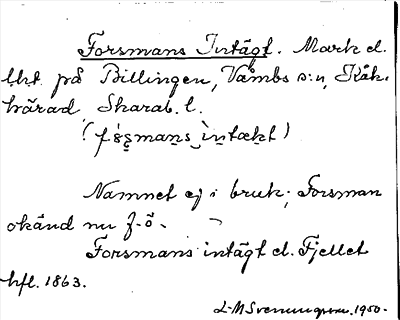 Forsmans Intägt. Mark el.
lht på Billingen, Våmbs s:n, Kåk-
härad Skarab. l.
Namnet ej i bruk; Forsman
okänd nu f. ö.
Forsmans intägt el. Fjellet
hfl. 1863.
L-M Svenungsson. 1950.